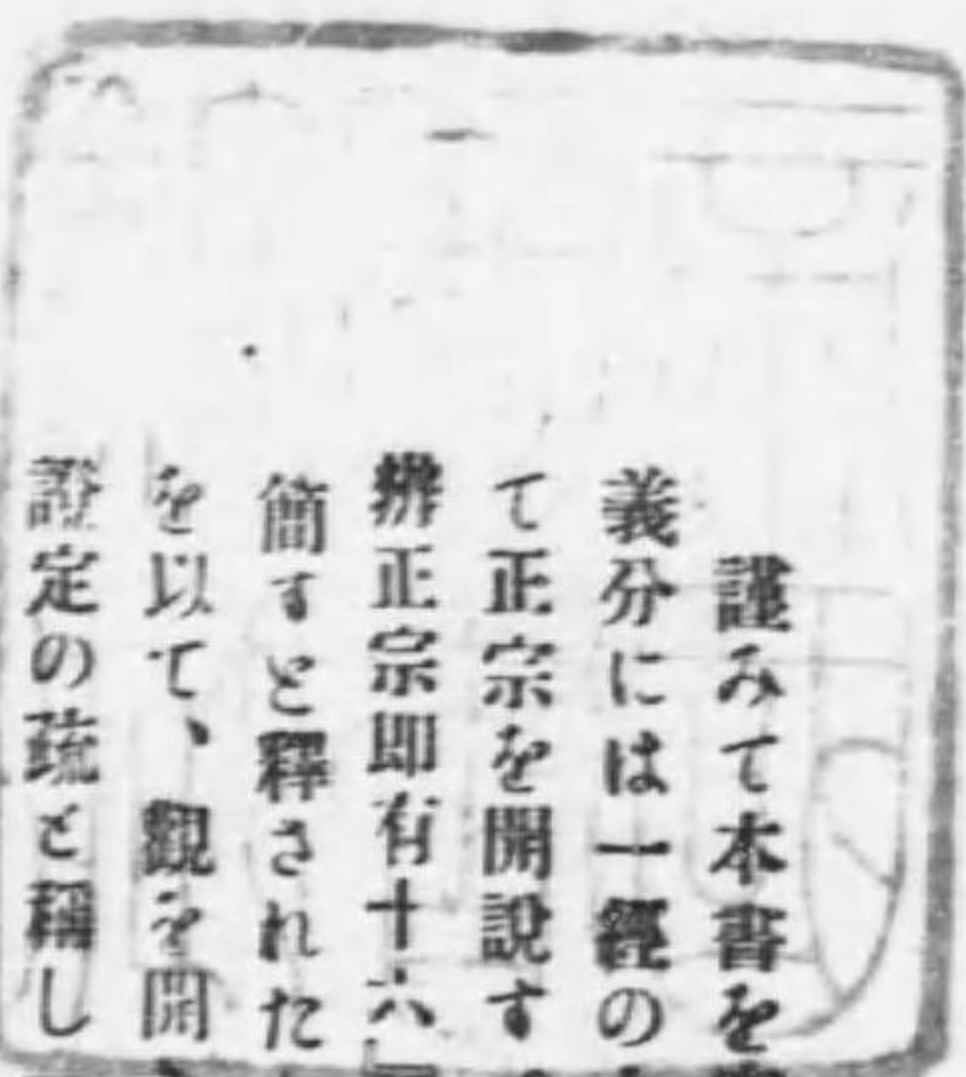 謹みて本書を
義分には一經の
て正宗を開說す
辨正宗卽有十六
簡すと釋された
を以て、觀を開
證定の疏と稱し